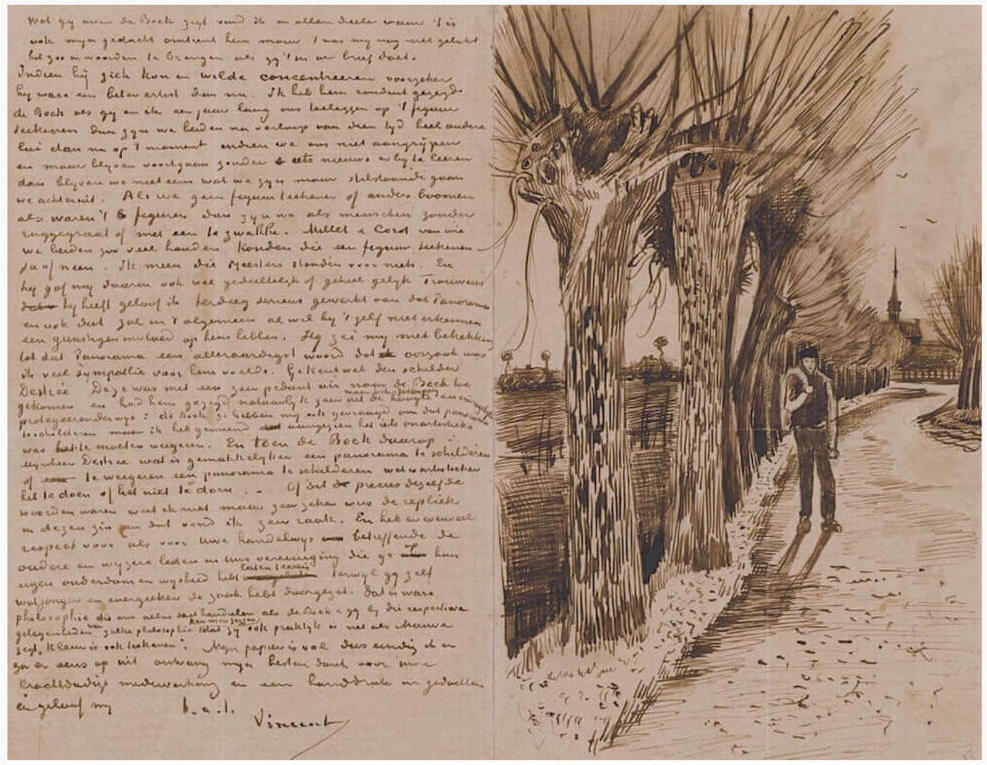 Wat gij over de Bock zegt vind ik in allen deele waar 't is
ook mijn gedacht omtrent hem maar 't was mij nog niet gelukt
het zoo in woorden te brengen als gij 't in uw brief doet.
Indien hij zich kon en wilde concentreeren voorzeker
hij ware een beter artist dan nu. Ik heb hem ronduit gezegd
de Bock als gij en ik een jaar lang ons toeleggen op 't figuur
teekenen dan zijn we beiden na verloop van dien tijd heel andere
lui dan nu op 't moment indien we ons niet aangrijpen
en maar blijven voortgaan zonder iets nieuws er bij te leeren
dan blijven we niet eens wat we zijn maar stilstaande gaan
we achteruit. Als we geen figuur teekenen of anders boomen
als waren 't figuren dan zijn we als menschen zonder
ruggegraat of met een te zwakke. Millet & Corot van wie
we beiden zoo veel houden konden die een figuur teekenen
ja of neen. Ik meen die Meesters stonden voor niets. En
hij gaf mij daarin ook wel gedeeltelijk of geheel gelijk Trouwens
hij heeft geloof ik terdeeg serieus gewerkt aan dat Panorama
en ook dat zal in 't algemeen al wil hij 't zelf niet erkennen
een gunstigen invloed op hem hebben. Hij zei mij met betrekking
tot dat Panorama een alleraardigst woord dat oorzaak was
ik veel sympathie voor hem voelde. Ge kent wel den schilder
Destrée. Deze was met een zeer pedant air naar de Bock toe
gekomen en had hem gezegd natuurlijk zeer uit de hoogte en
: de Bock ze hebben mij ook gevraagd om dat panorama
te schilderen maar ik heb gemeend aangezien het iets onartistieks
was het te moeten weigeren. En toen de Bock daarop :
Mijnheer Destrée wat is gemakkelijker een panorama te schilderen
of te weigeren een panorama te schilderen wat is artistieker
het te doen of het niet te doen. – Of dit precies dezelfde
woorden waren weet ik niet meer zeer zeker was de repliek
in dezen zin en dat vond ik zeer raak. En heb er evenveel
respect voor als voor uwe handelwijs betreffende de
oudere en wijzere leden in uwe vereeniging die ge op hun
eigen ouderdom en wijsheid hebt laten teeren terwijl gij zelf
wat jonger en energieker de zaak hebt doorgezet. Dat is ware
philosophie die ons aldus doet handelen als de Bock & gij bij die respectieve
gelegenheden zulke philosophie kan men zeggen dat zij ook praktijk is net als Mauve
zegt, kleur is ook teekenen. Mijn papier is vol dus eindig ik en
ga er eens op uit ontvang mijn besten dank voor uwe
krachtdadige medewerking en een handdruk in gedachten
en geloof mij t.à.t.
Vincent